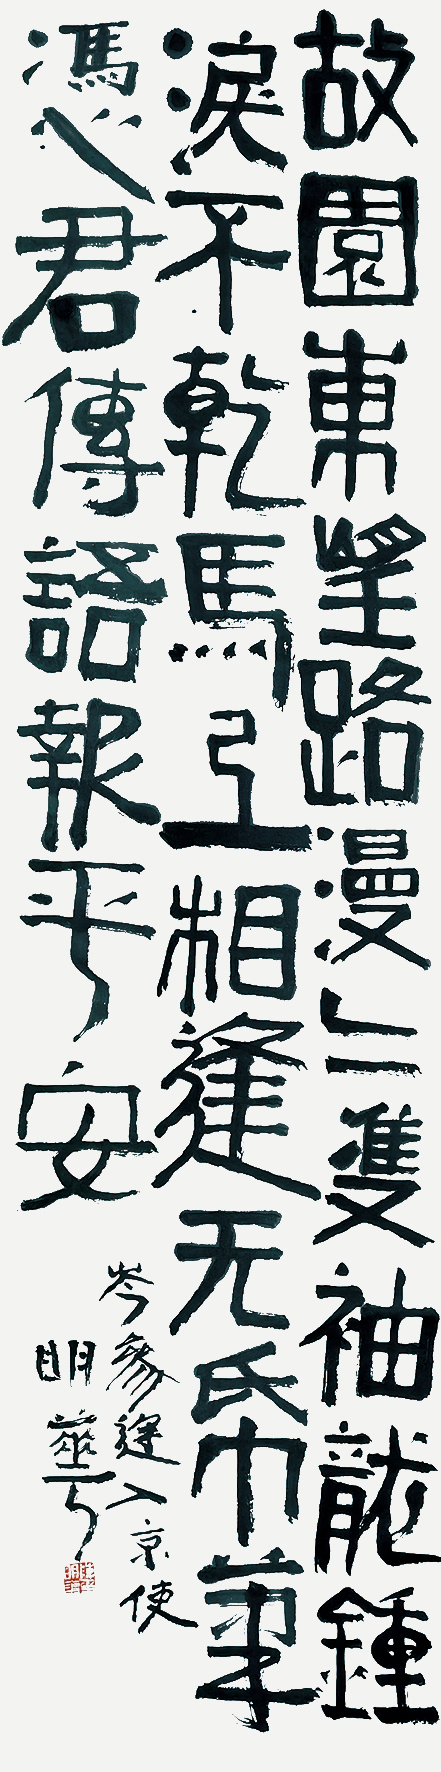 故園東望路漫〻隻袖龍鍾
淚不乾馬上相逢无帋筆
憑君傳語報平安
岑參逢入京使
明